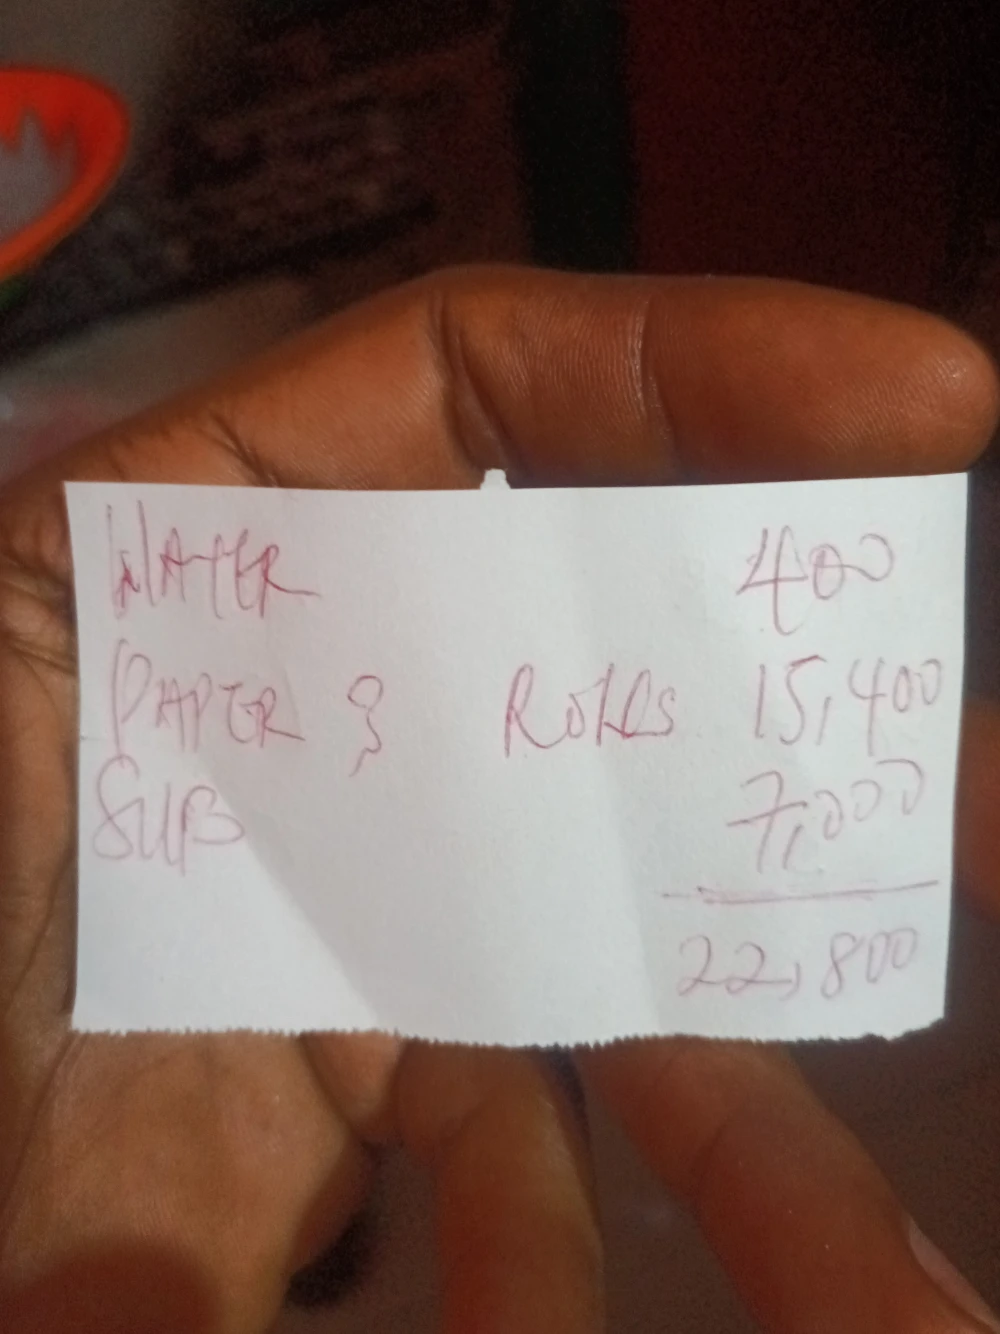 WATER 400
PAPER & ROLLS 15,400
SUB 7,000
22,800